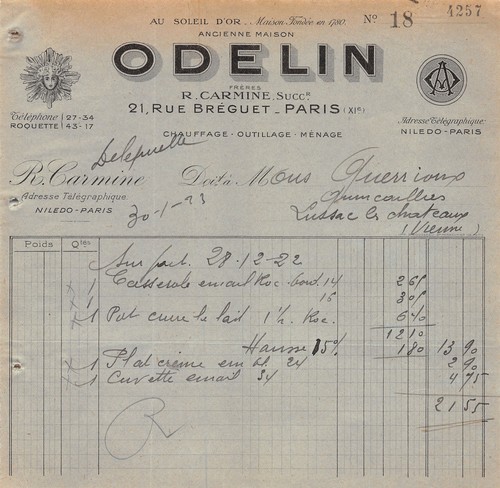 AU SOLEIL D'OR .. Maison Fondée en 1780.
Nº 18
4257
ANCIENNE MAISON
ODELIN
FRÈRES
R. CARMINE, SUCCR
21, RUE BRÉGUET _ PARIS (XIe)
Téléphone 27-34
ROQUETTE 43-17
Adresse Télégraphique:
NILEDO-PARIS
CHAUFFAGE · OUTILLAGE · MÉNAGE
R. Carmine
Doit à Mons Guerrioux
Adresse Télégraphique
Quincaillier
NILEDO-PARIS
30-1-23
Lussac les chateaux
(Vienne)
Poids Qtés
Sur fact. 28-12-22
1 Casserole email Roc. bord. 14 265
1 16 305
1 Pot cuire le lait 1 ½ Roc. 640
1210
Hausse 15% 180 13 90
1 Plat crème em bl. 24 2 90
1 Cuvette email 34 4 75
21 55
R